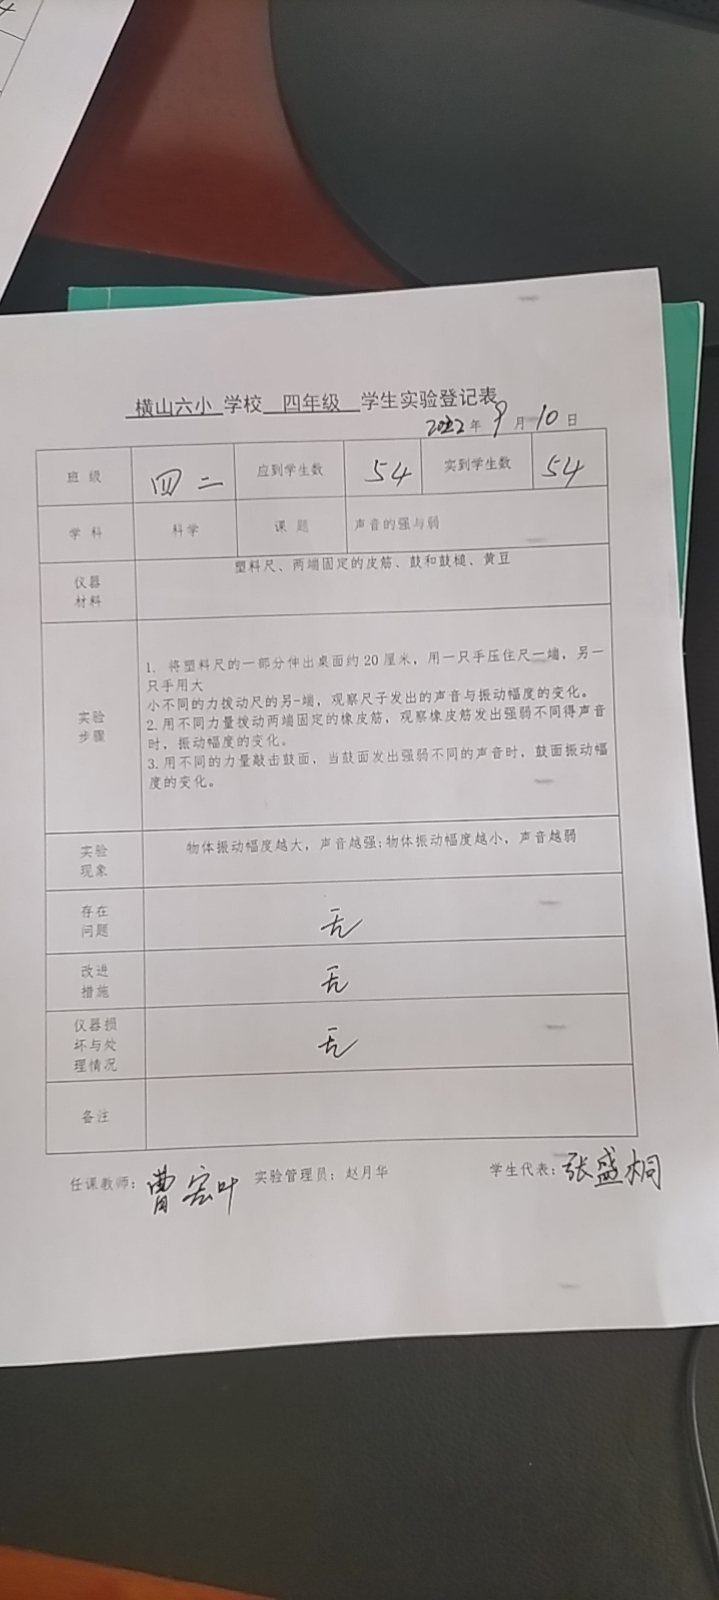 横山六小 学校 四年级 学生实验登记表
2022年9月10日
班 级 四 二 应到学生数 54 实到学生数 54
学 科 科学 课 题 声音的强与弱
仪器
材料
塑料尺、两端固定的皮筋、鼓和鼓槌、黄豆
实验
步骤
1. 将塑料尺的一部分伸出桌面约20厘米，用一只手压住尺一端，另一
只手用大
小不同的力拨动尺的另-端，观察尺子发出的声音与振动幅度的变化。
2.用不同力量拨动两端固定的橡皮筋，观察橡皮筋发出强弱不同得声音
时，振动幅度的变化。
3.用不同的力量敲击鼓面，当鼓面发出强弱不同的声音时，鼓面振动幅
度的变化。
实验
现象
物体振动幅度越大，声音越强;物体振动幅度越小，声音越弱
存在
问题
无
改进
措施
无
仪器损
坏与处
理情况
无
备注
任课教师：曹宏叶 实验管理员：赵月华 学生代表：张盛桐